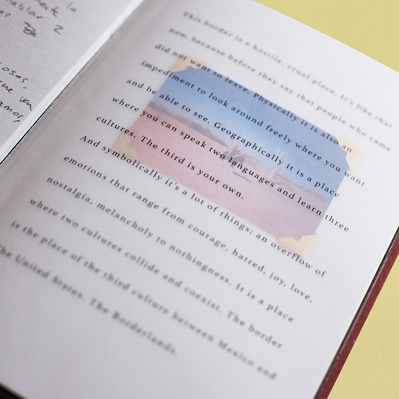 la
hablar 2
cosas,
This border is a hostile, cruel place. It's like that
now, because before they say that people who came
did not want to leave. Physically it is also an
impediment to look around freely where you want
and be able to see. Geographically it is a place
where you can speak two languages and learn three
cultures. The third is your own.
And symbolically it's a lot of things: an overflow of
emotions that range from courage, hatred, joy, love,
nostalgia, melancholy to nothingness. It is a place
where two cultures collide and coexist. The border
is the place of the third culture between Mexico and
The United States. The Borderlands.